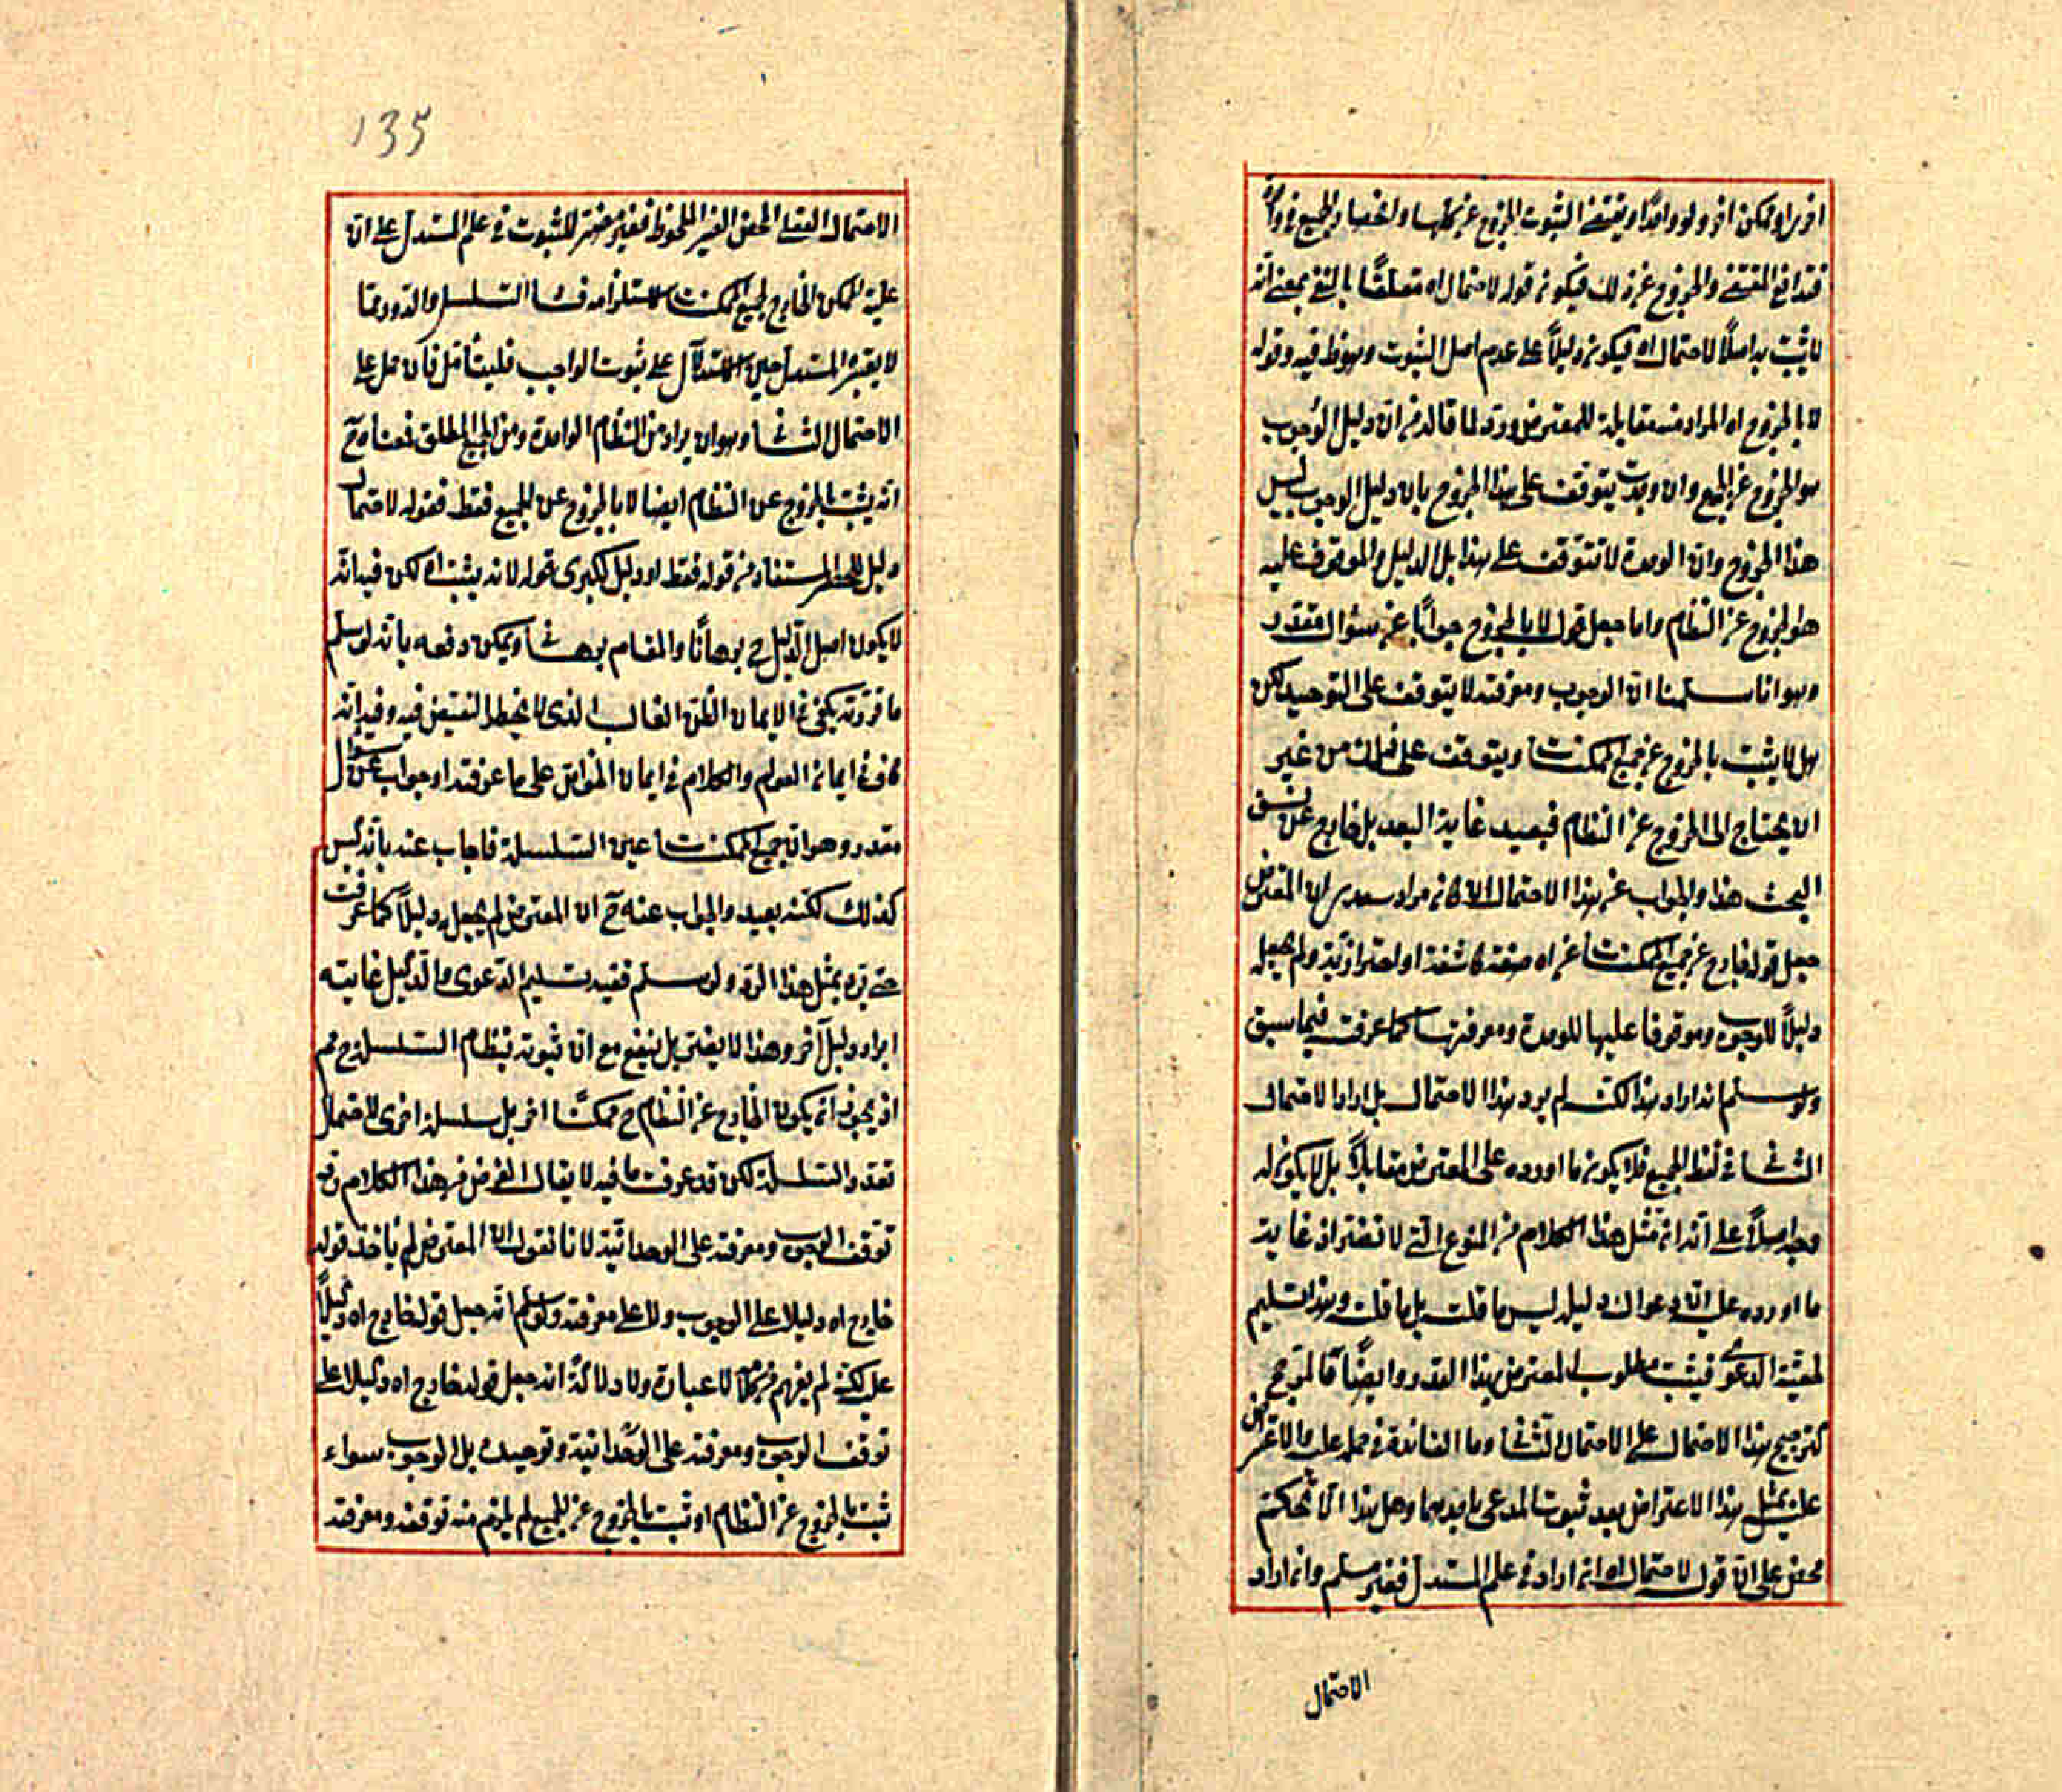 اخرى او ممكن اخر ولو واحدًا ويقتضى الثبوت الخروج عن كلها وانحصار الجميع فى واحد
فتدافع المقتضى والخروج عن ذلك فيكون قوله لاحتمال اه متعلقًا بالنفى بمعنى انّه
لا يثبت به اصلًا لاحتمال اه فيكون دليلًا على عدم اصل الثبوت وهو ظ فيه وقوله
لا بالخروج اه المراد منه مقابلة للمعترض ورد لما قاله من انّ دليل الوجوب
هو الخروج عن الجميع وان وحدت يتوقف على هذا الخروج بان دليل الوجوب ليس
هذا الخروج وانّ الوحدة لا تتوقف على هذا بل الدليل والموقوف عليه
هو الخروج عن النظام واما جعل قوله لا بالخروج جوابًا عن سؤال مقدر
وهو انا سلمنا انّ الوجوب ومعرفته لا يتوقف على التوحيد لكن
هل لا يثبت بالخروج عن جميع الممكنات ويتوقف على ذلك من غير
ان يحتاج الى الخروج عن النظام فبعيد غاية البعد بل خارج عن نسق
البحث هذا والجواب عن هذا الاحتمال ان كان مراد سعدى ان المعترض
جعل قوله خارج عن جميع الممكنات اه صفة كاشفة او احترازية ولم يجعل
دليلًا للوجوب وموقوفا عليها للوحدة ومعرفتها كما عرفت فيما سبق
ولو سلم انه اراد هذا لكنه لم يرد هذا الاحتمال بل اراد الاحتمال
الثانى فى لفظ الجميع فلا يكون ما اورده على المعترض مقابلًا بل لا يكون له
وجه اصلًا على انّه ان مثل هذا الكلام من المنوع التى لا تضر اذ غاية
ما اورده على انّ دعواك دليله ليس ما قلت بل ما قلت وهذا تسليم
لحقيّة الدعوى فيثبت مطلوب المعترض بهذا القدر وايضًا فالمرجح
لترجيح هذا الاحتمال على الاحتمال الثانى وما الفائدة فى حمله عليه والاعتراض
عليه بمثل هذا الاعتراض بعد ثبوت المدعى بايديهما وهل هذا الّا تحكم
محض على انّ قوله لاحتمال اه ان اراد فى علم المستدل فغير مسلم وان اراد
الاحتمال
135
الاحتمال العقلى المحض الغير الملحوظ فغير مضر للثبوت فى علم المستدل على انّ
عليّة الممكن الخارج لجميع الممكنات لاستلزامه فساد التسلسل والدور مما
لا يعتبر المستدل حين الاستدلال على ثبوت الواجب فليتأمل فان حمل على
الاحتمال الثانى وهو ان يراد من النظام الواحدة ومن الجميع المطلق فمعناه ح
انّه يثبت بالخروج عن النظام ايضا لا بالخروج عن الجميع فقط فقوله لاحتمال
دليل للحصر المستفاد من قوله فقط او دليل لكبرى قوله لانه يثبت اه لكن فيه انّه
لا يكون اصل الدليل ح برهانًا والمقام برهانى ويمكن دفعه بانّه لو سلم
ما قررته يكفى فى الايمان الظن الغالب الذى لا يخطر النقيض فيه وفيه انّه
كاف فى ايمان العوام والكلام فى ايمان الخواص على ما عرفته او جواب عن سؤال
مقدر وهو ان جميع الممكنات عين السلسلة فاجاب عنه بانّه ليس
كذلك لكنّه بعيد والجواب عنه ح ان المعترض لم يجعله دليلًا كما عرفت
حتى يرد بمثل هذا الرد ولو سلم ففيه تسليم الدعوى والدليل غايته
ايراد دليل آخر وهذا لا يضر بل ينفع مع انّ ثبوته بنظام السلسلة ح مم
اذ يجوز ان يكون الخارج عن النظام ح ممكنًا اخر بل سلسلة اخرى لاحتمال
تعدد السلسلة لكن قد عرفت ما فيه لا يقال الغرض من هذا الكلام رد
توقف الوجوب ومعرفته على الوحدانيّة لانا نقول انّ المعترض لم يأخذ قوله
خارج اه دليلا على الوجوب ولا على معرفته ولو سلم انّه جعل قوله خارج اه دليلًا
على لكنه لم يفهم من كلامه لا عبارة ولا دلالة انه جعل قوله خارج اه دليلا على
توقف الوجوب ومعرفته على الوحدانية وتوحيده بل الوجوب سواء
ثبت بالخروج عن النظام او ثبت بالخروج عن الجميع لم يلزم منه توقفه ومعرفته